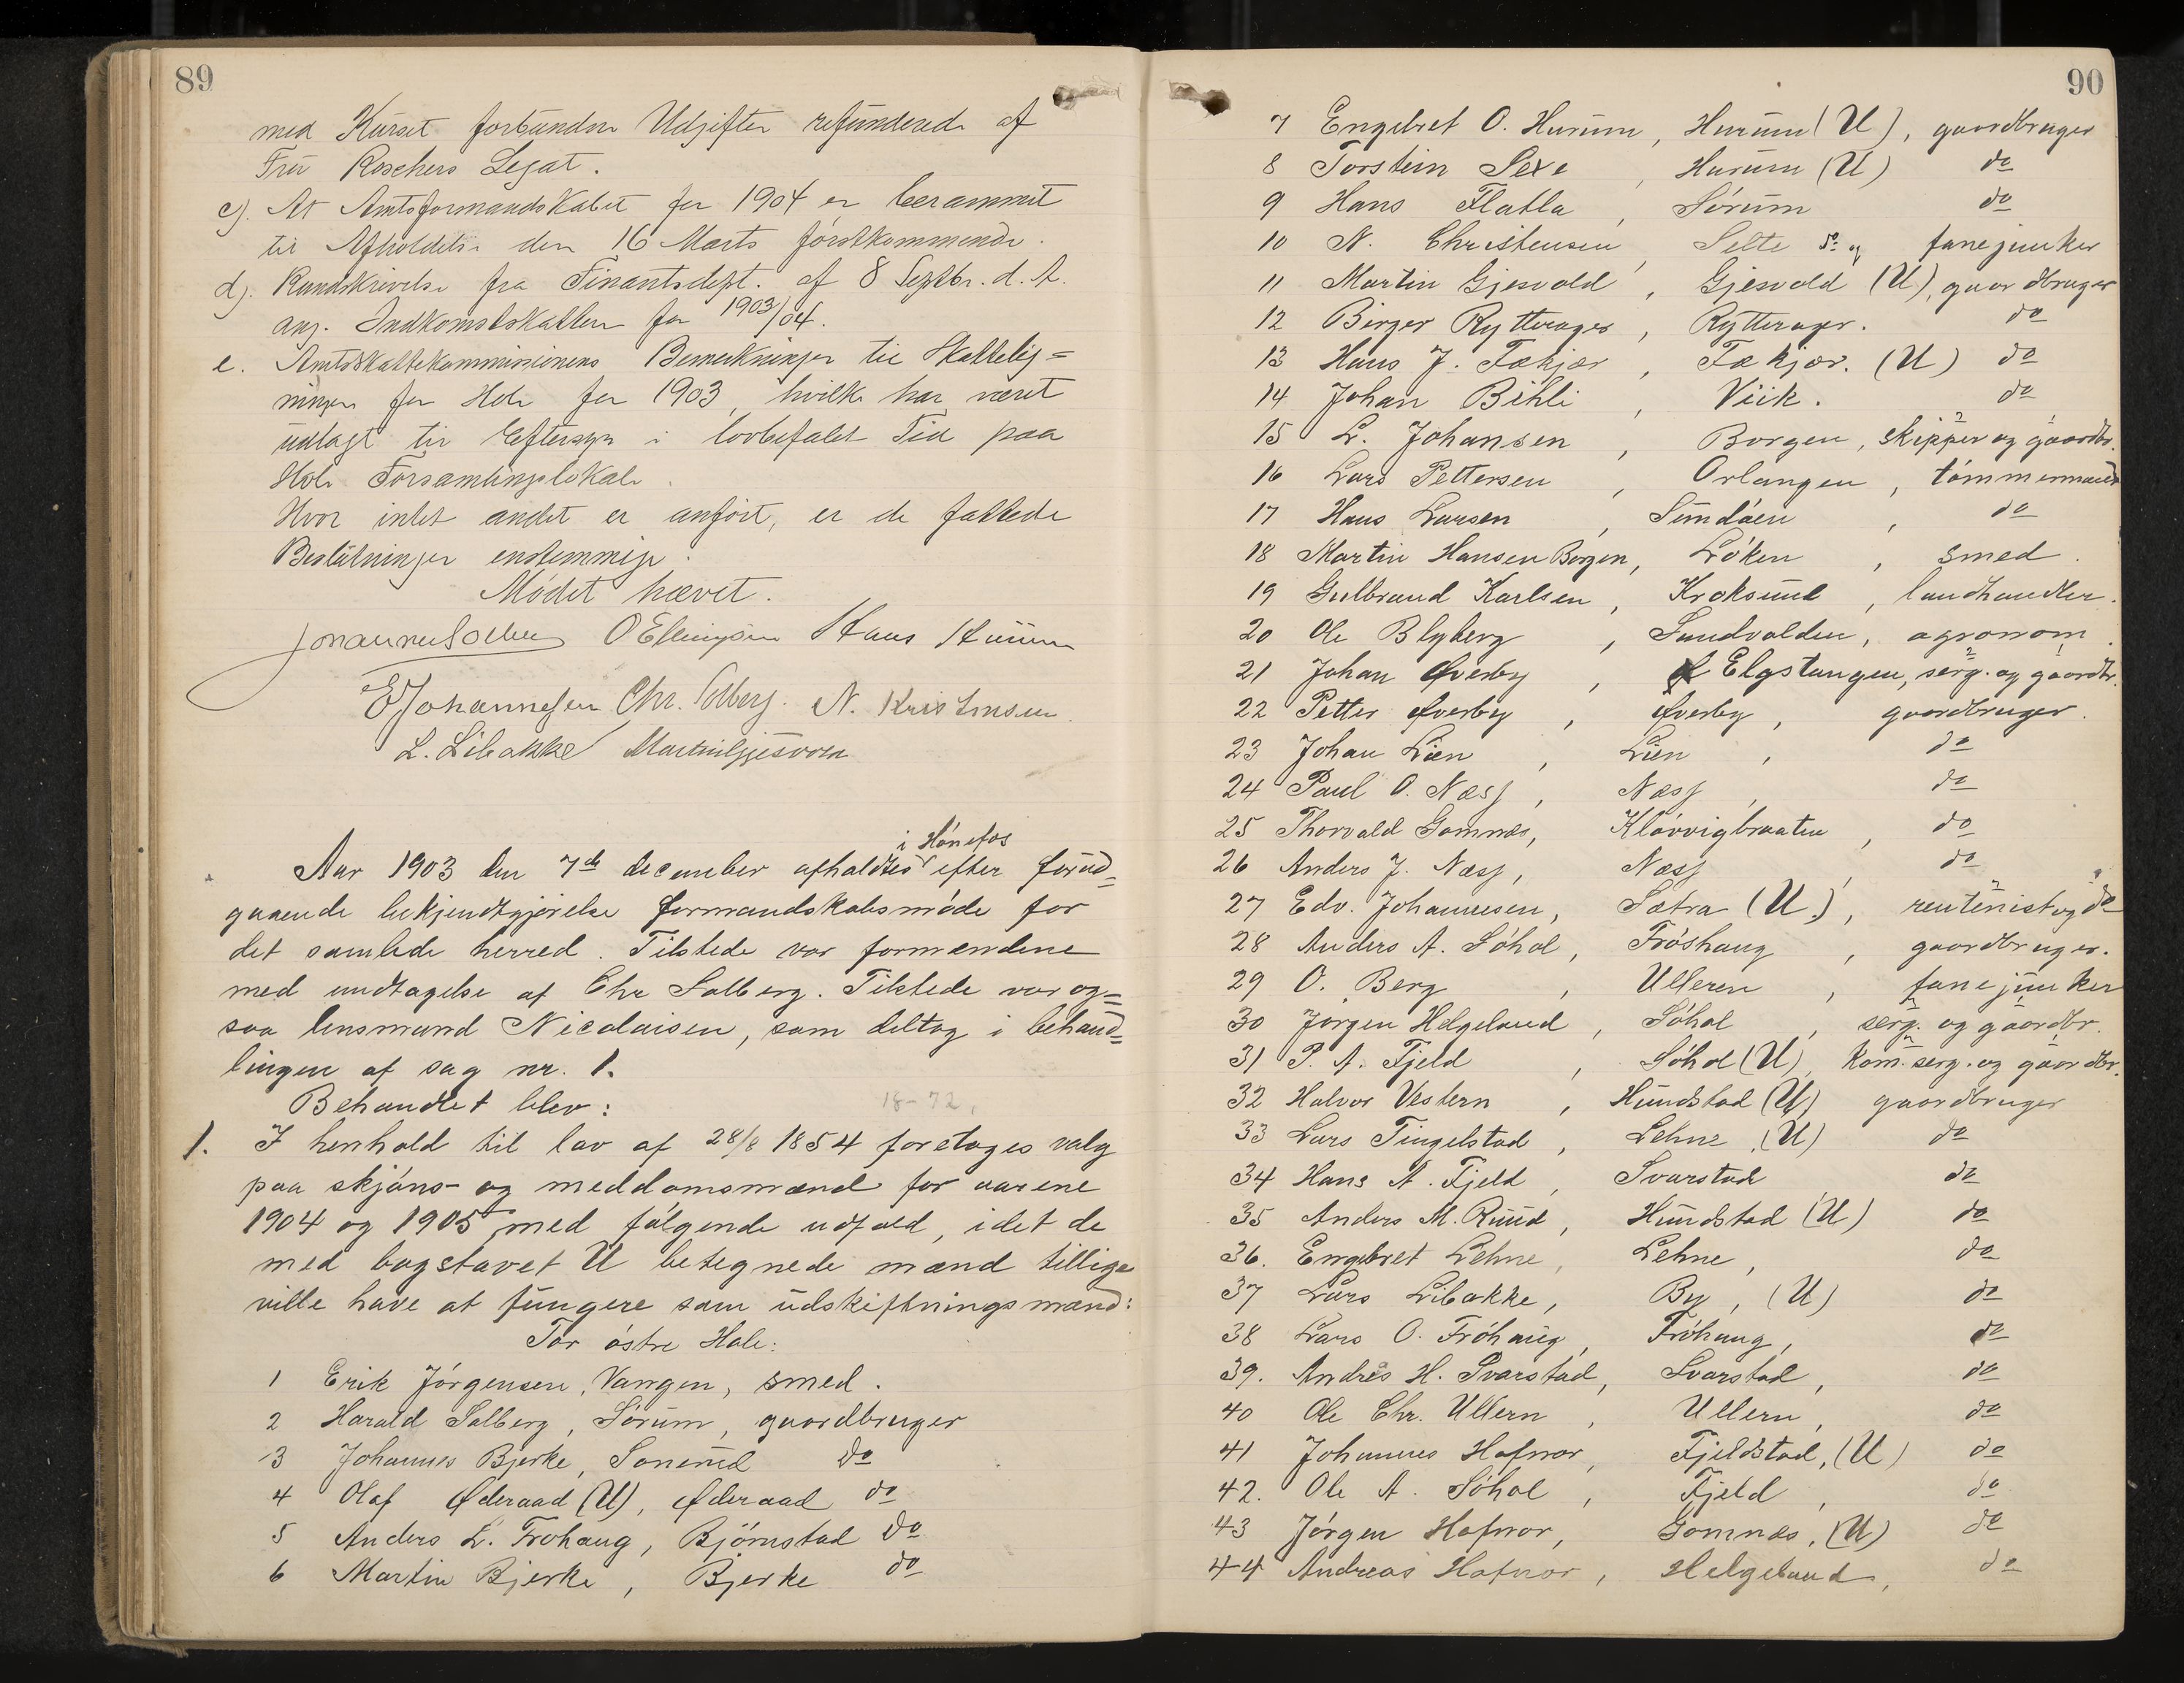 89
med Kurset forbundne Udgifter refunderede af
Fru Roschers Legat.
c). At Amtsformandskabet for 1904 er berammet
til Afholdelse den 16 Marts førstkommende.
d). Rundskrivelse fra Finantsdept. af 8 Septbr. d. A.
ang. Indkomstskatten for 1903/04.
e. Amtsskattekommissionens Bemerkninger til Skattelig=
ningen for Hole for 1903, hvilke har været
udlagt til Eftersyn i lovbefalet Tid paa
Hole Forsamlingslokale.
Hvor intet andet er anført, er de fattede
Beslutninger enstemmige.
Mødet hævet.
O Ellingsen Hans
E Johannesen Chr. Solberg. N. Kristensen
L. Libakke Martin Gjesvold
i Hönefos
Aar 1903 den 7de december afholdtes efter forud=
gaaende bekjendtgjørelse formandskabsmøde for
det samlede herred. Tilstede var formændene
med undtagelse af Chr Solberg. Tilstede var og=
saa lensmand Nicolaisen, som deltog i behand=
lingen af sag nr. 1.
Behandlet blev:
18-72,
1. I henhold til lov af 28/8 1854 foretages valg
paa skjöns- og meddomsmænd for aarene
1904 og 1905 med fölgende udfald, idet de
med bogstavet U betegnede mænd tillige
ville have at fungere som udskiftningsmænd:
For östre Hole:
1 Erik Jörgensen, Vangen, smed.
2 Harald Solberg, Sörum, gaardbruger
3 Johannes Bjerke, Sonerud do
4 Olaf Øderaad (U), Øderaad do
5 Anders L. Frohaug, Björnstad do
6 Martin Bjerke, Bjerke do
90
7 Engebret O. Hurum, Hurum (U), gaardbruger
8 Torstein Sexe, Hurum (U) do
9 Hans Flatla, Sörum do
10 N. Christensen, Selte do og fanejunker
11 Martin Gjesvold, Gjesvold (U), gaardbruger
12 Birger Rytterager, Rytterager. do
13 Hans J. Fækjær, Fækjær. (U) do
14 Johan Bihli, Viik. do
15 L. Johansen, Borgen, skipper og gaardbr.
16 Lars Pettersen, Orlangen, tömmermand
17 Hans Larsen, Sundöen, do
18 Martin Hansen Borgen, Löken, smed.
19 Gulbrand Karlsen, Kroksund, landhandler.
20 Ole Blyberg, Sundvolden, agronom.
21 Johan Øverby, Elgstangen, serg. og gaardbr.
22 Petter Øverby, Øverby, gaardbruger.
23 Johan Lien, Lien, do
24 Paul O. Næss, Næss, do
25 Thorvald Gomnæs, Klövvigbraaten, do
26 Anders J. Næss, Næss, do
27 Edv. Johannesen, Sætra (U.), rentenist og do
28 Anders A. Söhol, Fröshaug, gaardbruger.
29 O. Berg, Ulleren, fanejunker
30 Jörgen Helgeland, Söhol, serg. og gaardbr.
31 P. A. Fjeld, Söhol (U), kom. serg. og gaardbr.
32 Halvor Vestern, Hundstad (U) gaardbruger
33 Lars Tingelstad, Lehne, (U) do
34 Hans A. Fjeld, Svarstad do
35 Anders M. Ruud, Hundstad (U) do
36. Engebret Lehne, Lehne, do
37 Lars Libakke, By, (U) do
38 Lars O. Fröhaug, Fröhaug, do
39. Andrés H. Svarstad, Svarstad, do
40 Ole Chr. Ullern, Ullern, do
41 Johannes Hafnor, Fjeldstad, (U) do
42. Ole A. Söhol, Fjeld, do
43 Jörgen Hafnor, Gomnæs, (U) do
44 Andreas Hafnor, Helgeland, do